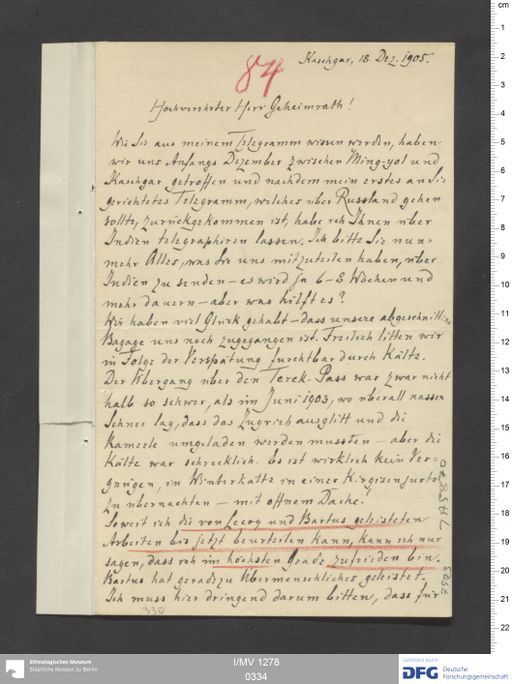 84
Kaschgar, 18. Dez. 1905.
Hochverehrter Herr Geheimrath!
Wie Sie aus meinem Telegramm wissen werden, haben
wir uns Anfangs Dezember zwischen Ming-yol und
Kaschgar getroffen und nachdem mein erstes an Sie
gerichtetes Telegramm, welches über Russland gehen
sollte, zurückgekommen ist, habe ich Ihnen über
Indien telegraphiren lassen. Ich bitte Sie nun-
mehr Alles, was Sie uns mitzuteilen haben, über
Indien zu senden – es wird ja 6–8 Wochen und
mehr dauern – aber was hilft es?
Wir haben viel Glück gehabt – dass unsere abgeschnittene
Bagage uns noch zugegangen ist. Freilich litten wir
in Folge der Verspätung furchtbar durch Kälte.
Der Übergang über den Terek-Pass war zwar nicht
halb so schwer, als im Juni 1903, wo überall nasser
Schnee lag, dass das Zugvieh ausglitt und die
Kameele umgeladen werden mussten – aber die
Kälte war schrecklich. Es ist wirklich kein Ver-
gnügen, in Winterkälte in einer Kirgisenjurte
zu übernachten – mit offnem Dache.
Soweit ich die von Lecoq und Bartus geleisteten
Arbeiten bis jetzt beurteilen kann, kann ich nur
sagen, dass ich im höchsten Grade zufrieden bin.
Bartus hat geradezu Übermenschliches geleistet.
Ich muss hier dringend darum bitten, dass für
330
Ethnologisches Museum
Staatliche Museen zu Berlin
I/MV 1278
0334
Gefördert durch
DFG
Deutsche
Forschungsgemeinschaft
cm
1
2
3
4
5
6
7
8
9
10
11
12
13
14
15
16
17
18
19
20
21
22